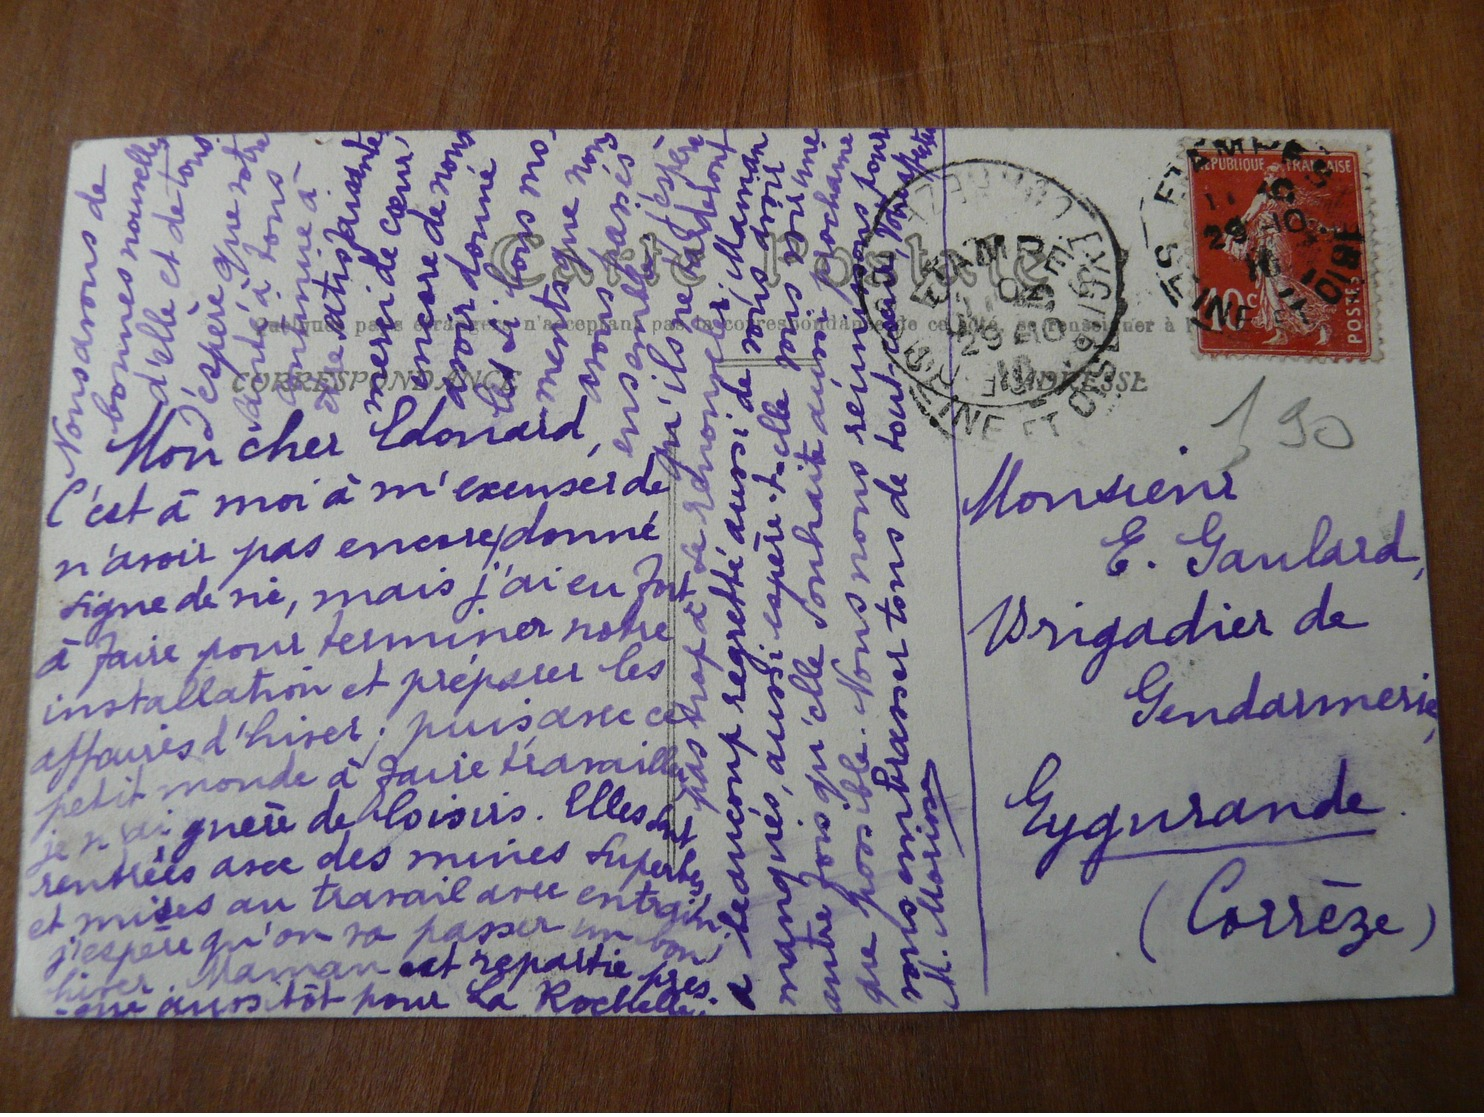 Carte Postale
Quelques pays étrangers n'acceptant pas la correspondance de ce côté, se renseigner à l
CORRESPONDANCE
ADRESSE
Mon cher Edouard,
C'est à moi à m'excuser de
n'avoir pas encore donné
signe de vie, mais j'ai eu fort
à faire pour terminer notre
installation et préparer les
affaires d'hiver; puis avec ce
petit monde à faire travailler
je n'ai guère de loisirs. Elles sont
rentrées avec des mines superbes
et mises au travail avec entrain,
j'espère qu'on va passer un bon
hiver. Maman est repartie pres-
que aussitôt pour La Rochelle.
Nous avons de
bonnes nouvelles
d'elle et de tous
J'espère que votre
santé à tous
continue à
être satisfaisante
merci de cœur,
encore de nous
avoir donné
les si bons mo-
ments que nous
avons passés
ensemble, j'espère
qu'ils ne tarderont
pas trop à se renouveler, Maman
a beaucoup regretté aussi de vous avoir
manqués, aussi espère-t-elle vous voir une
autre fois qu'elle souhaite aussi prochaine
que possible. Nous nous réunissons pour
vous embrasser tous de tout cœur,
M. Morin
Monsieur
E. Gaulard,
Brigadier de
Gendarmerie,
Eygurande
(Corrèze)
190
REPUBLIQUE FRANÇAISE
10c
POSTES
ETAMPES
29 -10
10
SEINE ET OISE
ETAMPES
29 -10
10
SEINE ET OISE
CORREZE